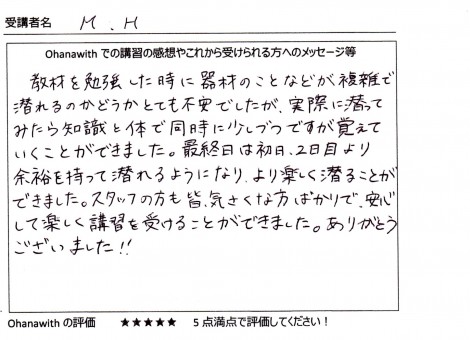 受講者名 M.H
Ohanawith での講習の感想やこれから受けられる方へのメッセージ等
教材を勉強した時に器材のことなどが複雑で
潜れるのかどうかとても不安でしたが、実際に潜って
みたら知識と体で同時に少しづつですが覚えて
いくことができました。最終日は初日、2日目より
余裕を持って潜れるようになり、より楽しく潜ることが
できました。スタッフの方も皆、気さくな方ばかりで、安心
して楽しく講習を受けることができました。ありがとう
ございました!!
Ohanawith の評価 ★★★★★ 5点満点で評価してください!